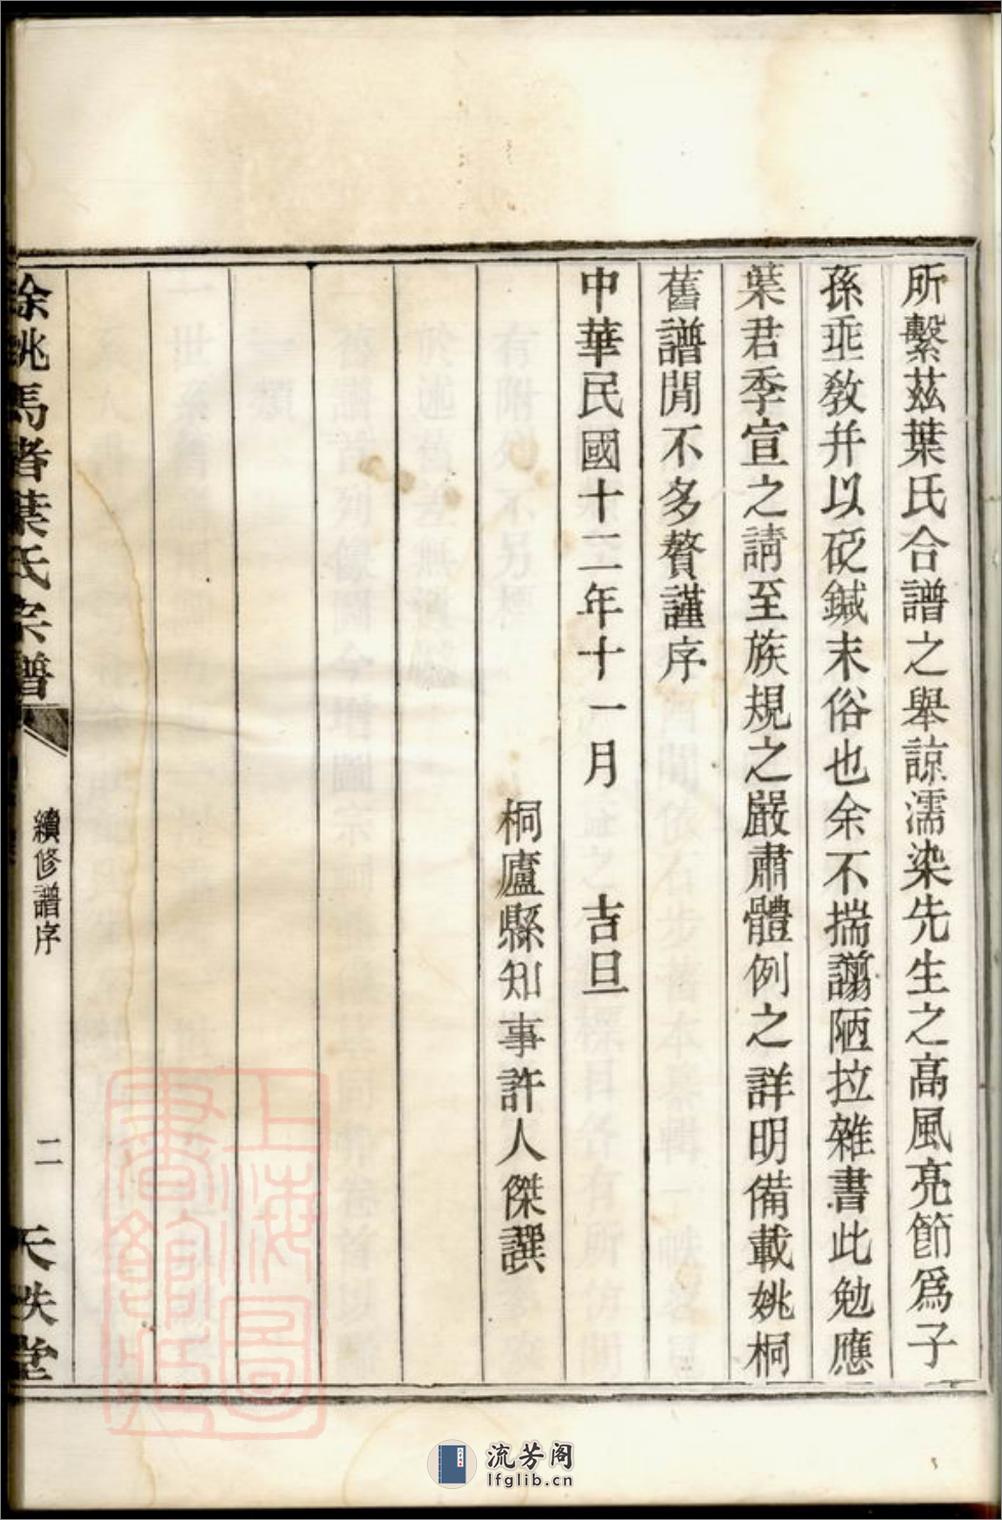 所繫茲葉氏合譜之舉諒濡染先生之高風亮節爲子
孫垂敎幷以砭鍼末俗也余不揣譾陋拉雜書此勉應
葉君季宣之請至族規之嚴肅體例之詳明備載姚桐
舊譜閒不多贅謹序
中華民國十二年十一月 吉旦
桐廬縣知事許人傑譔
餘姚馬渚葉氏宗譜
續修譜序
二
天秩堂
上海圖書館藏
流芳阁
lfglib.cn